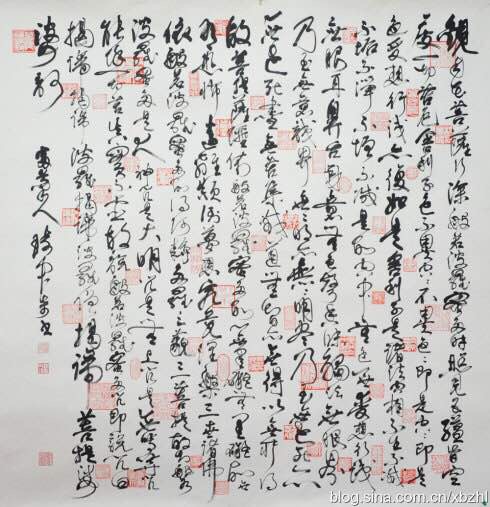 觀自在菩薩行深般若波羅蜜多時照見五蘊皆空
度一切苦厄舍利子色不異空空不異色色即是空空即是
色受想行識亦復如是舍利子是諸法空相不生不滅
不垢不淨不增不減是故空中無色無受想行識
無眼耳鼻舌身意無色聲香味觸法無眼界
乃至無意識界無無明亦無無明盡乃至無老死亦
無老死盡無苦集滅道無智亦無得以無所得
故菩提薩埵依般若波羅蜜多故心無罣礙無罣礙故
無有恐怖遠離顛倒夢想究竟涅槃三世諸佛
依般若波羅蜜多故得阿耨多羅三藐三菩提故知般若
波羅蜜多是大神咒是大明咒是無上咒是無等等咒
能除一切苦真實不虛故說般若波羅蜜多咒即說咒曰
揭諦揭諦波羅揭諦波羅僧揭諦菩提薩
婆訶
blog.sina.com.cn/xbzhl